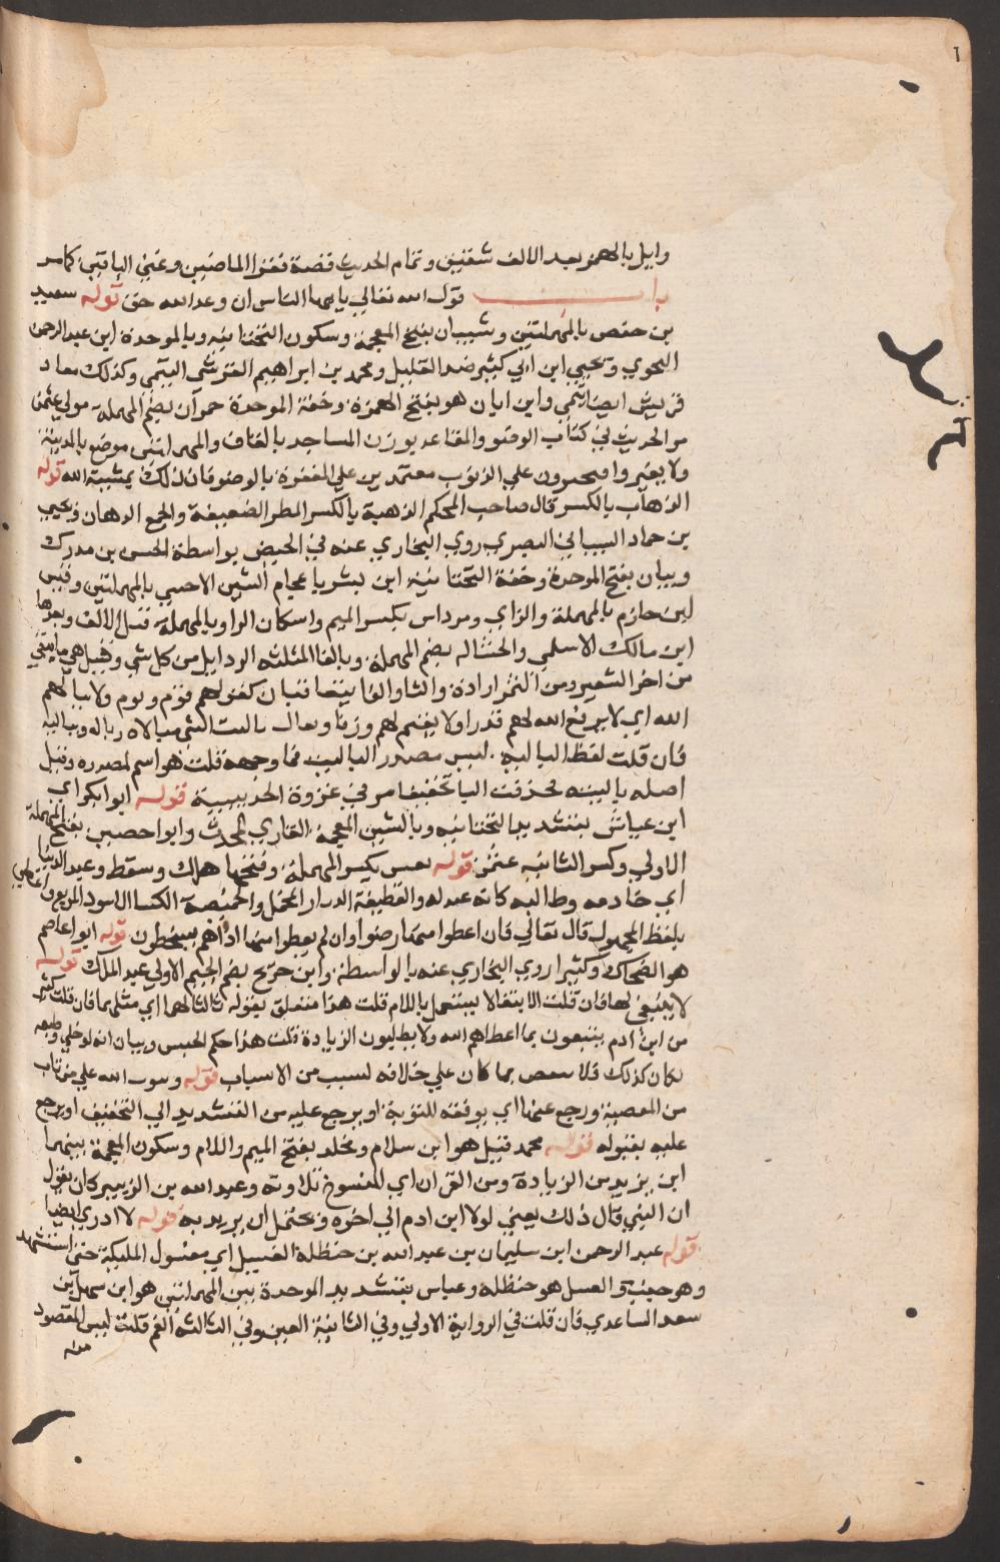 وايل بالهمز بعد الالف شقيق وتمام الحديث قصة فغزا الماضين وعني الباقين كما مر
باب قول الله تعالي يا يها الناس ان وعد الله حق قوله سعيد
بن حفص بالمهملتين وشيبان بفتح المعجمة وسكون التحتانيه وبالموحدة ابن عبد الرحمن
النحوي ويحيي ابن ابي كثير ضد القليل ومحمد بن ابراهيم القرشي التيمي وكذلك معاد
قريش ايضا تيمي وابن ابان هو بفتح الهمزة وخفة الموحدة حمران بضم المهملة مولي عثمن
مر الحديث في كتاب الوضو والمقاعد بوزن المساجد بالقاف والمهملتين موضع بالمدينة
ولا يغتروا فيجسرون علي الذنوب معتمدين علي المغفرة بالوضو فان ذلك بمشيية الله قوله
الذهاب بالكسر قال صاحب المحكم الذهبة بالكسر المطر الضعيفة والجمع الذهاب ويحيي
بن حماد الشيباني البصري روي البخاري عنه في الحيض بواسطة الحسن بن مدرك
وبيان بفتح الموحدة وخفة التحتانيه ابن بشر باعجام الشين الاحمسي بالمهملتين وقيس
ابن حازم بالمهملة والزاي ومرداس بكسر الميم واسكان الرا وبالمهملة قبل الالف وبعدها
ابن مالك الاسلمي والحثاله بضم المهملة وبالفا المثلثه الردي من كل شي وقيل هي ما يبقي
من اخر الشعير ومن التمر ارادة والثا والفا يتعاقبان كقولهم فوم وثوم ولا يباليهم
الله اي لا يرفع الله لهم قدرا ولا يقيم لهم وزنا ويقال باليت الشي مبالاه وباله وباليه
فان قلت لفظ الباليه ليس مصدر الباليت فما وجهه قلت هو اسم لمصدره وقيل
اصله باليه فحذفت اليا تخفيفا مر في غزوة الحديبية قوله ابو بكر اي
ابن عياش بتشديد التحتانيه وبالشين المعجمة القاري المحدث وابو احصين بفتح المهملة
الاولي وكسر الثانيه عثمن قوله تعس بكسر المهملة وفتحها هلك وسقط وعبد الدينار
اي خادمه وطالبه كانه عبد له والقطيفة الدثار المخمل والخميصة الكسا الاسود المربع واعطي
بلفظ المجهول قال تعالي فان اعطوا منها رضوا وان لم يعطوا منها اذا هم يسخطون قوله ابو اعاصم
هو الضحاك وكثيرا روي البخاري عنه بالواسطة وابن جريج بضم الجيم الاولي عبد الملك قوله
لا يبتغي لها فان قلت الابتغا لا يستعمل باللام قلت هذا متعلق بقوله ثالثا لهما اي مثلهما فان قلت كثير
من ابن ادم يقنعون بما اعطاهم الله ولا يطلبون الزيادة قلت هذا حكم الجنس وبيان انه لو خلي وطبعه
لكان كذلك فلا ينتقض بما كان علي خلافه لسبب من الاسباب قوله ويتوب الله علي من تاب
من المعصية ورجع عنها اي يوفقه للتوبة او يرجع عليه من التشديد الي التخفيف او يرجع
عليه بقبوله قوله محمد قيل هو ابن سلام ومخلد بفتح الميم واللام وسكون المعجمة بينهما
ابن يزيد من الزيادة ومن القران اي المنسوخ تلاوته وعبد الله بن الزبير كان يقول
ان النبي قال ذلك يعني لولا ابن ادم الي اخره ويحتمل ان يريد به قوله لا ادري ايضا
قوله عبد الرحمن ابن سليمان بن عبد الله بن حنظلة الغسيل اي مغسول المليكة حتي استشهد
وهو جنب والغسل هو حنظله وعباس بتشديد الموحدة بين المهملتين هو ابن سهل بن
سعد الساعدي فان قلت في الرواية الاولي وفي الثانية العين وفي الثالثة الفم قلت ليس المقصود
منه